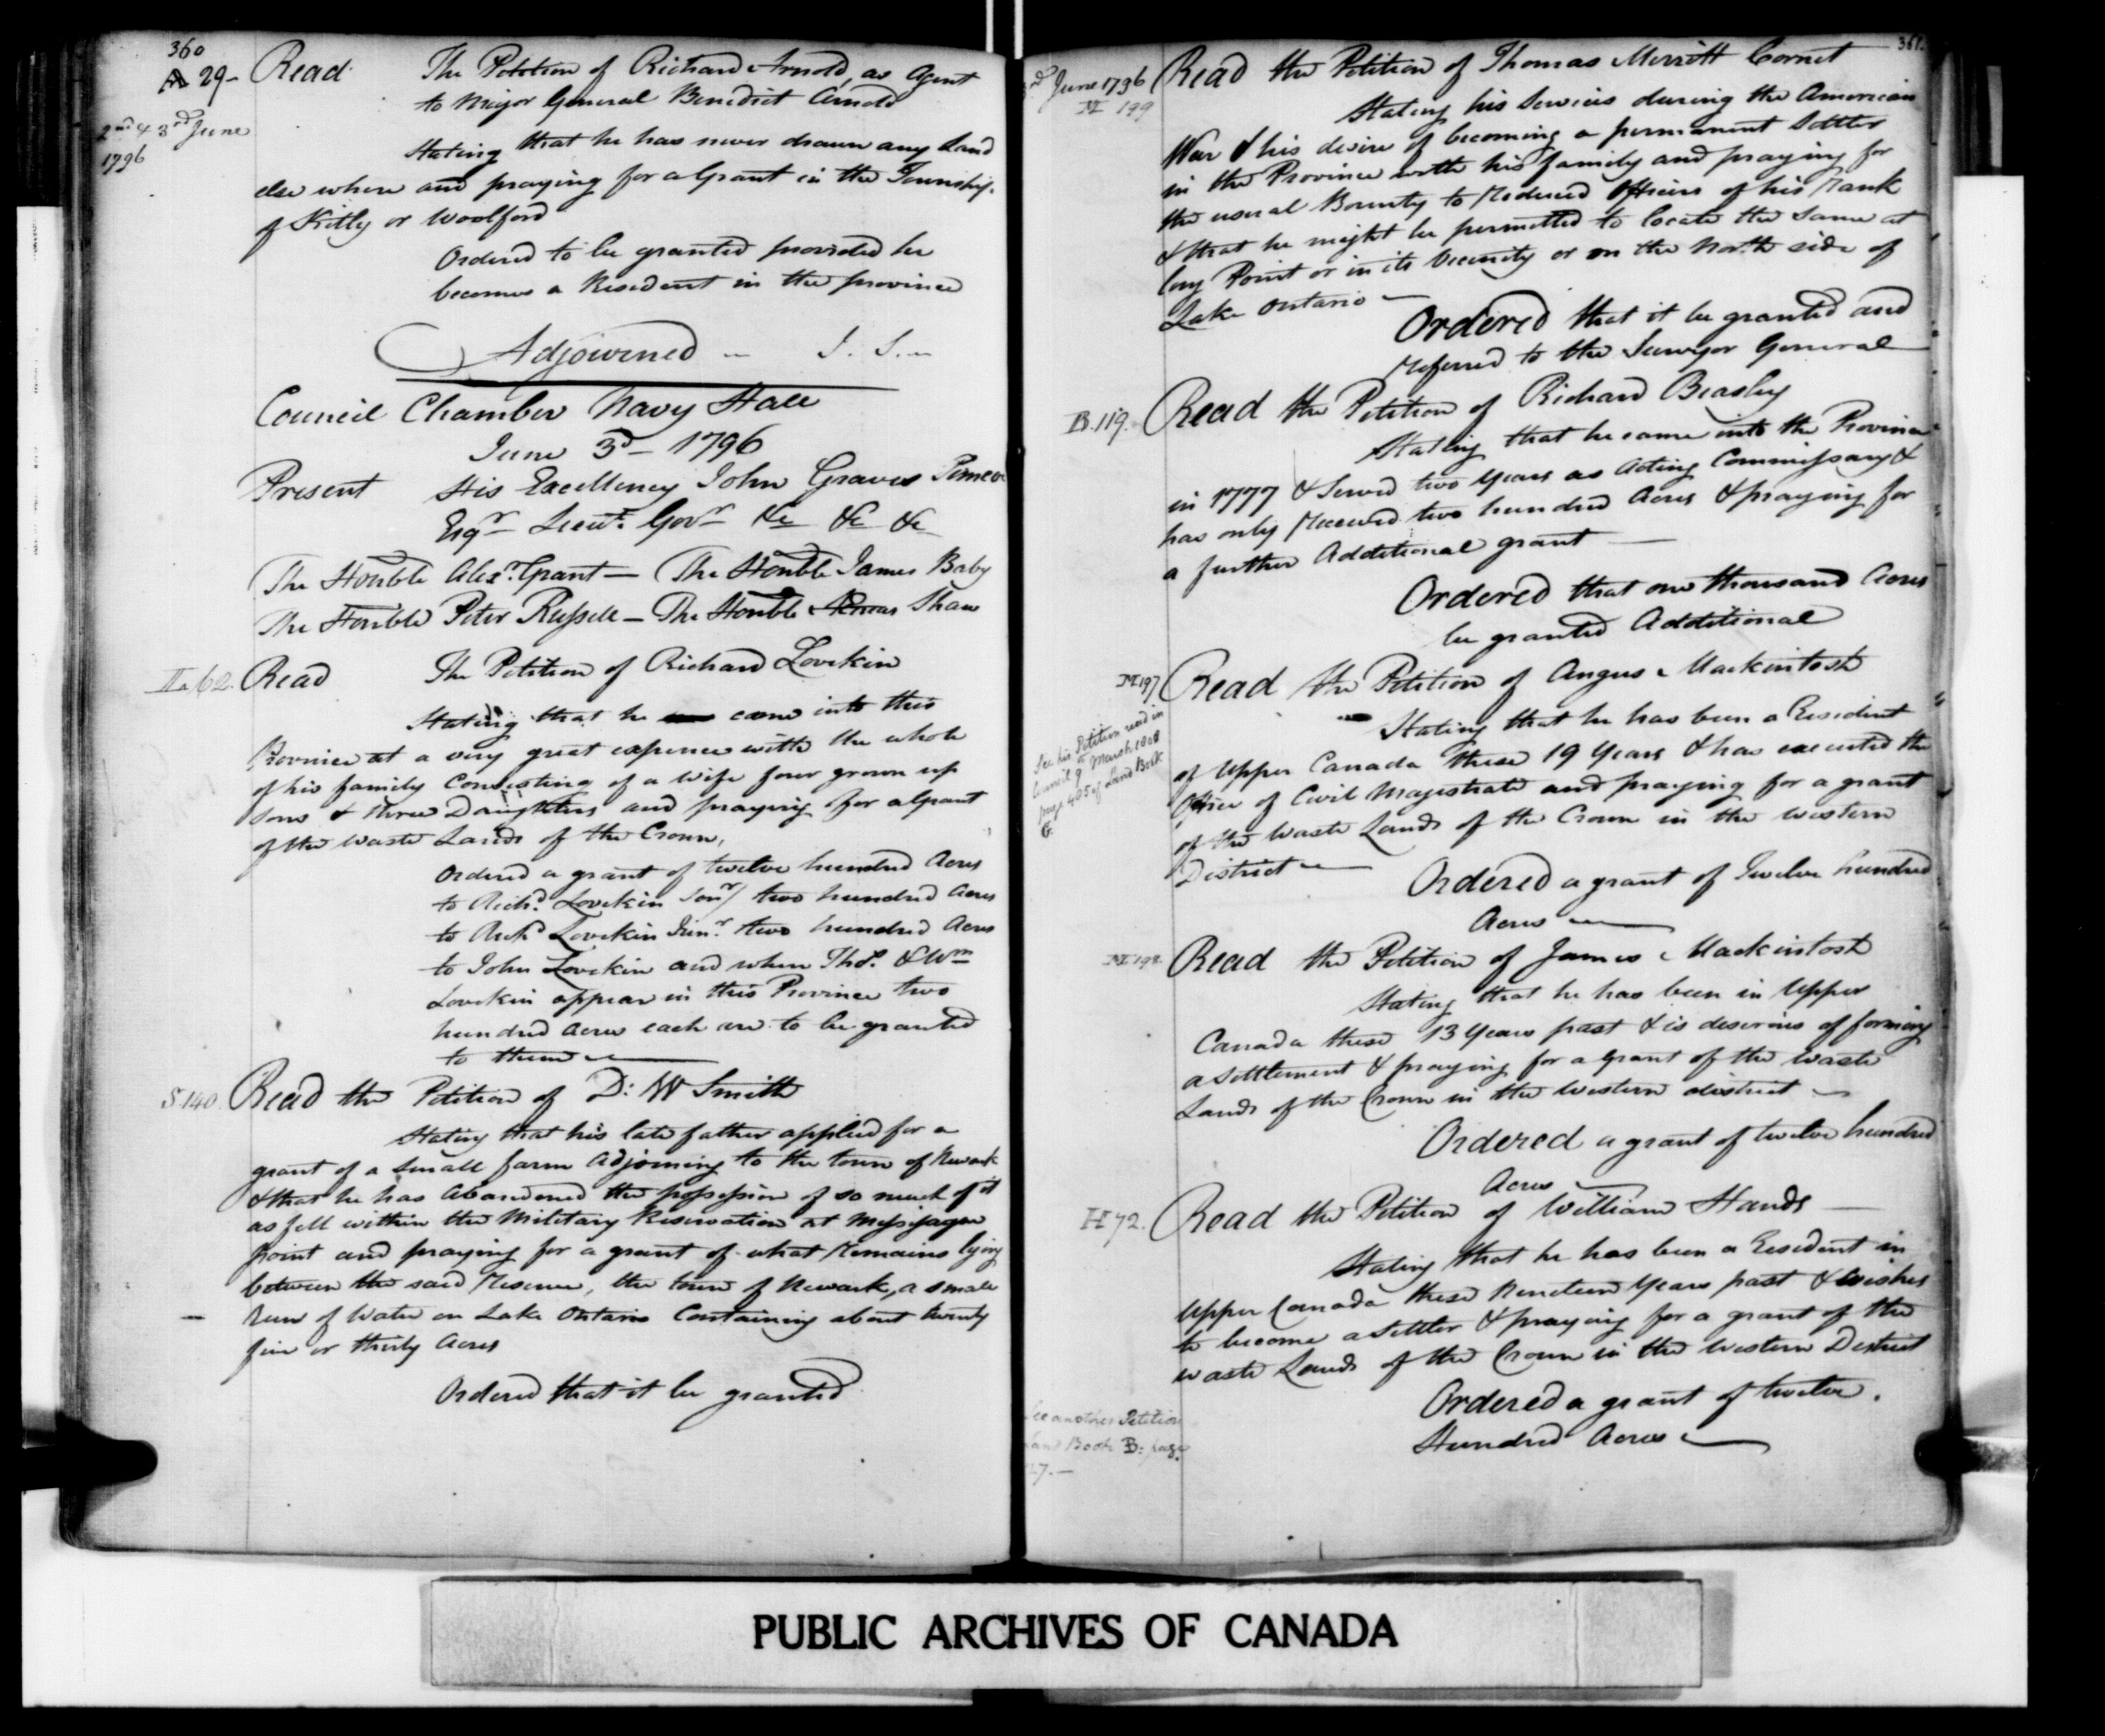 360
A 29-
2nd & 3rd June
1796
Read The Petition of Richard Arnold, as Agent
to Major General Benedict Arnold
Stating that he has never drawn any Land
else where and praying for a Grant in the Township
of Kitly or Woolford
Ordered to be granted provided he
becomes a Resident in the province
Adjourned J. S.
Council Chamber Navy Hall
June 3d - 1796
Present His Excellency John Graves Simcoe
Esqr Lieut. Govr &c &c &c
The Honble Alexr. Grant — The Honble James Baby
The Honble Peter Russell — The Honble Æneas Shaw
L 62. Read The Petition of Richard Lovekin
Stating that he came into this
Province at a very great expence with the whole
of his family Consisting of a Wife four grown up
Sons & three Daughters and praying for a Grant
of the waste Lands of the Crown,
Ordered a grant of twelve hundred Acres
to Richd. Lovekin Senr/ two hundred Acres
to Richd Lovekin Junr. two hundred Acres
to John Lovekin and when Thos. & Wm
Lovekin appear in this Province two
hundred acres each are to be granted
to them
S 140. Read the Petition of D: W Smith
Stating that his late father applied for a
grant of a small farm Adjoining to the town of Newark
& that he has Abandoned the possession of so much of it
as fell within the Military Reservation at Missisagua
point and praying for a grant of what remains lying
between the said Reserve, the town of Newark, a small
Run of Water on Lake Ontario Containing about twenty
five or thirty Acres
Ordered that it be granted
361.
3rd June 1796
M 199
Read the Petition of Thomas Merritt Cornet
Stating his Services during the American
War & his desire of becoming a permanent Settler
in the Province with his family and praying for
the usual Bounty to Reduced Officers of his Rank
& that he might be permitted to locate the same at
long Point or in its Vicinity or on the North side of
Lake Ontario —
Ordered that it be granted and
referred to the Surveyor General
B. 119. Read the Petition of Richard Beasley
Stating that he came into the Province
in 1777 & Served two years as Acting Commissary &
has only Received two hundred Acres & praying for
a further Additional grant —
Ordered that one thousand Acres
be granted Additional
M 197 Read the Petition of Angus Mackintosh
See his Petition read in
Council 9th March 1808
page 405 of Land Book
G.
Stating that he has been a Resident
of Upper Canada these 19 Years & has executed the
Office of Civil Magistrate and praying for a grant
of the Waste Lands of the Crown in the western
District —
Ordered a grant of Twelve hundred
Acres —
M 198. Read the Petition of James Mackintosh
Stating that he has been in Upper
Canada these 13 Years past & is deserious of forming
a settlement & praying for a grant of the waste
Lands of the Crown in the western district —
Ordered a grant of twelve hundred
Acres —
H 72. Read the Petition of William Hands —
Stating that he has been a Resident in
Upper Canada these Nineteen Years past & wishes
to become a settler & praying for a grant of the
waste Lands of the Crown in the western District
Ordered a grant of twelve
Hundred Acres —
See another Petition
Land Book B: page
27. —
PUBLIC ARCHIVES OF CANADA